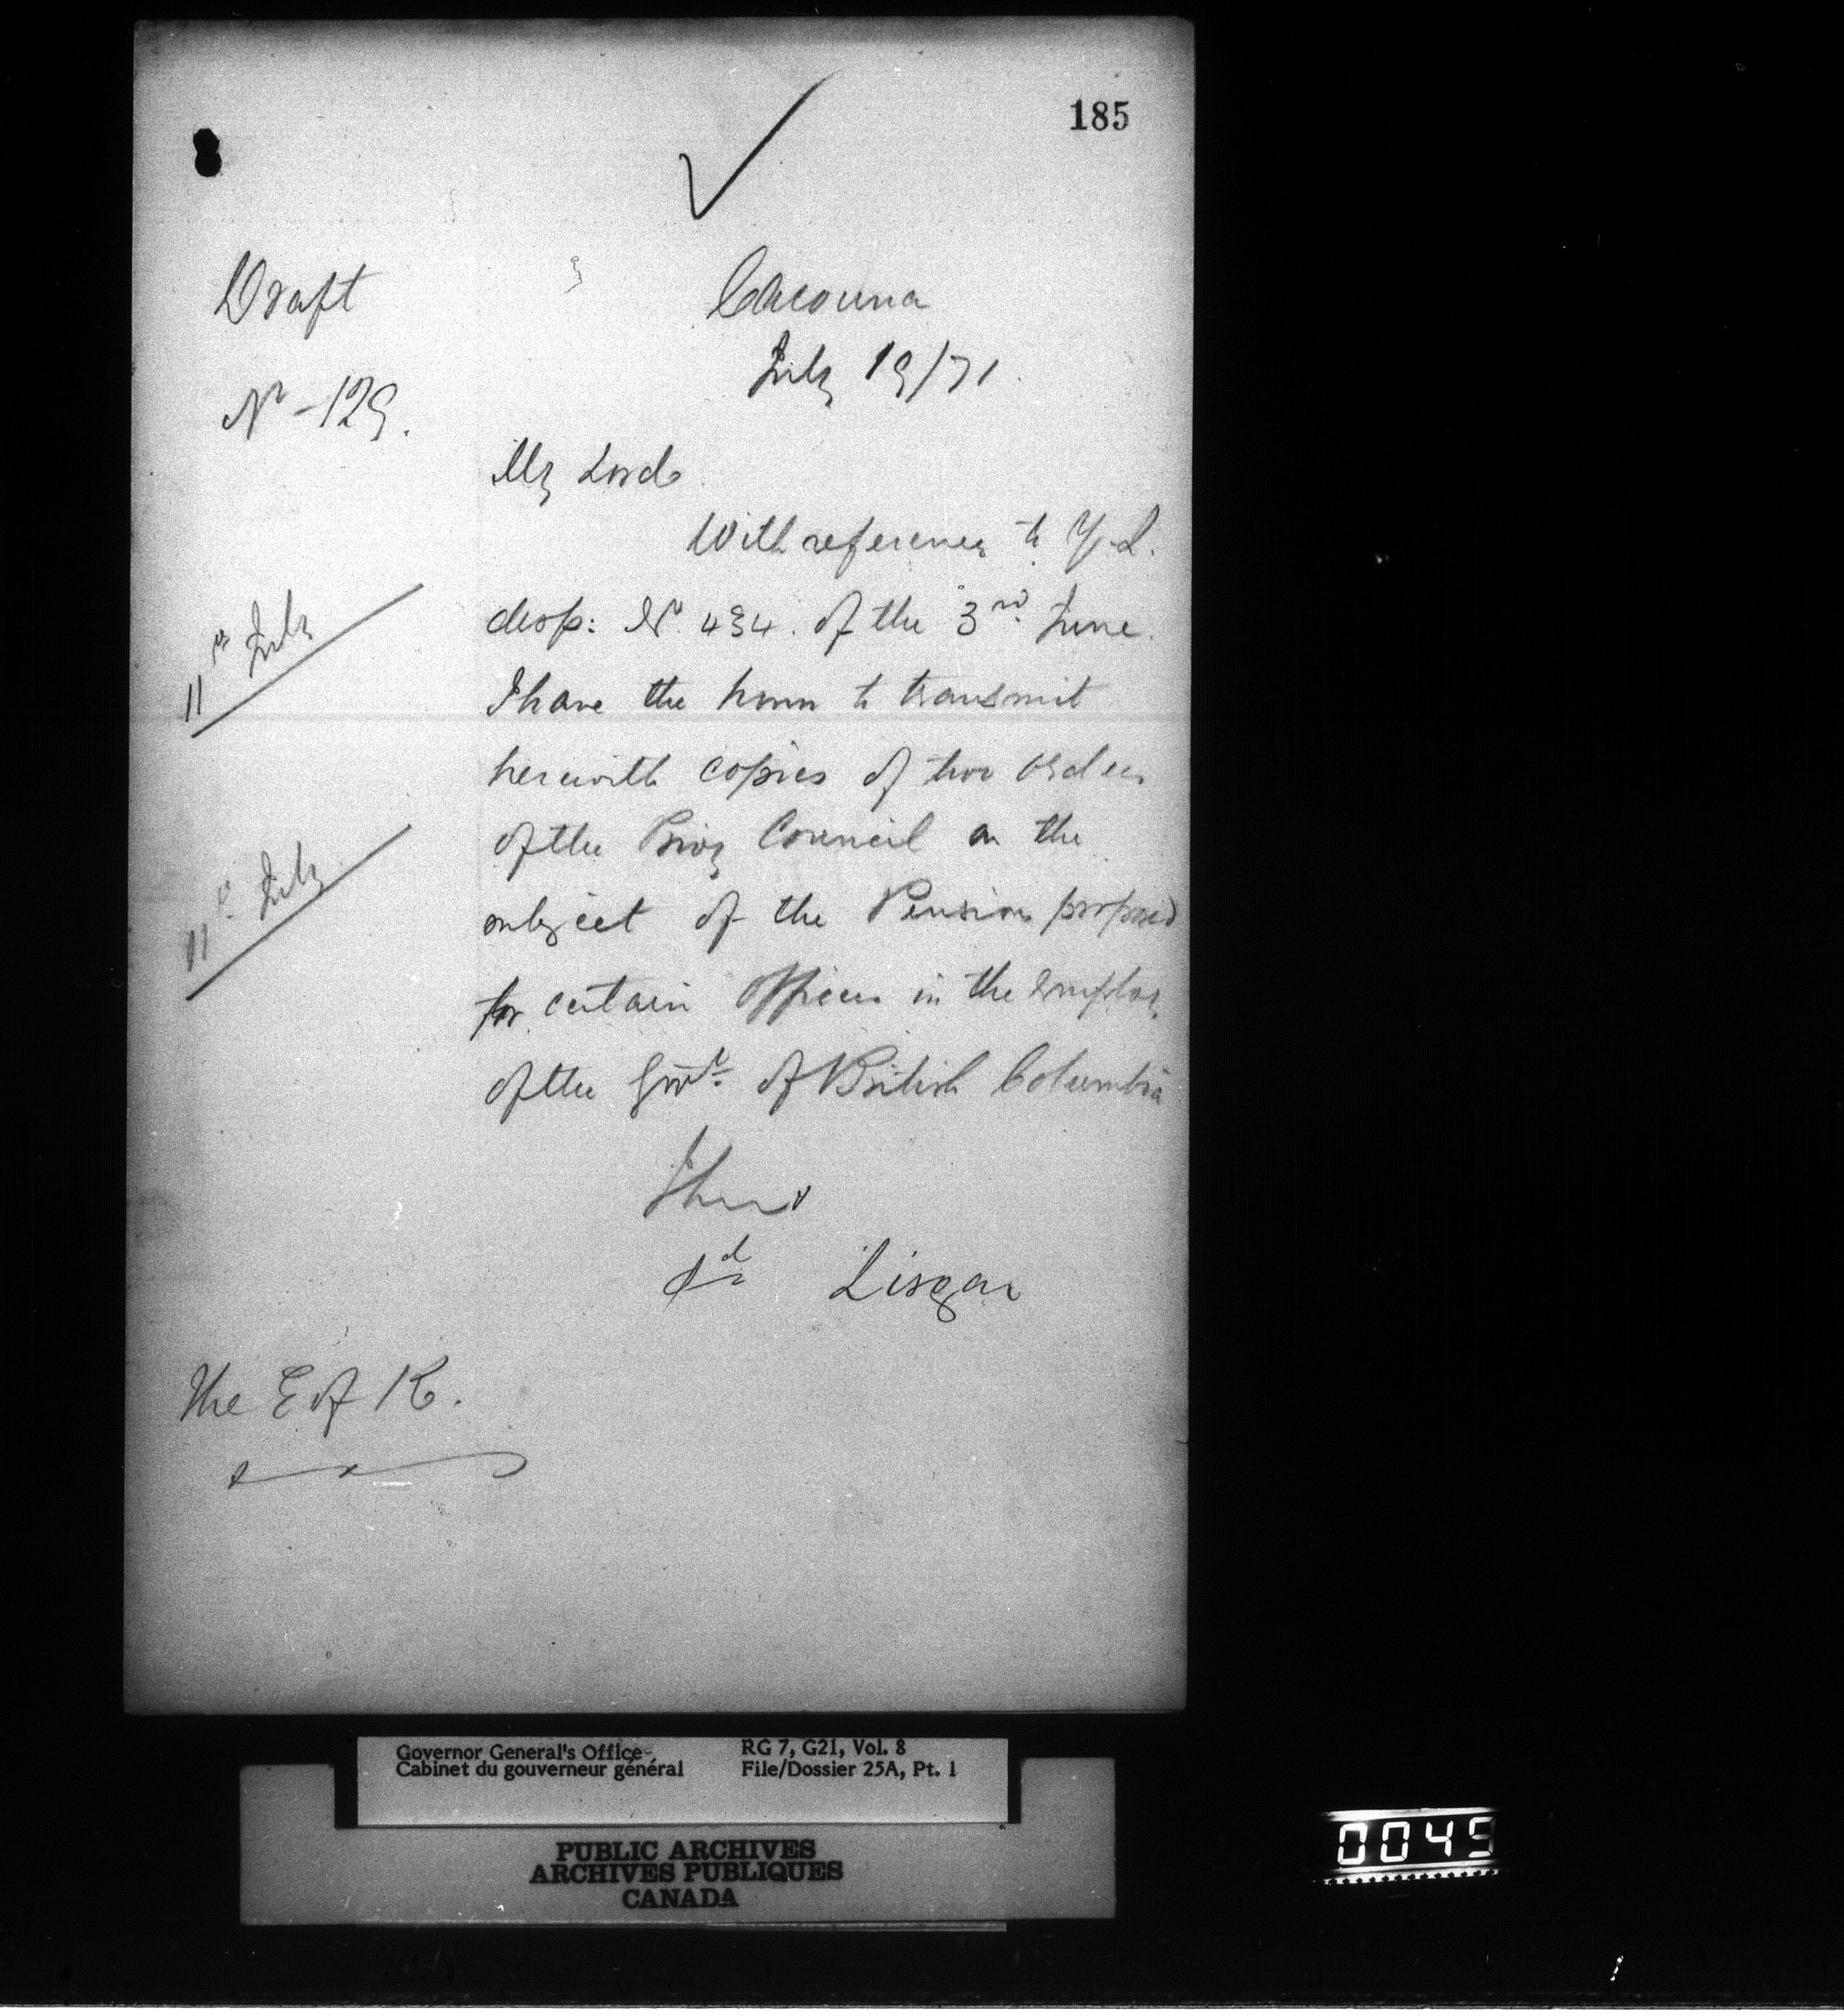 185
Draft
Cacouna
July 19/71.
No - 129.
My Lord
With reference to Y.L.
desp: No. 434. of the 3rd June.
11th July
I have the honor to transmit
herewith copies of two orders
of the Privy Council on the
11th July
subject of the Pensions proposed
for certain Officers in the employ
of the Govt. of British Columbia
I have
sd Lisgar
The E of K.
Governor General's Office
Cabinet du gouverneur général
RG 7, G21, Vol. 8
File/Dossier 25A, Pt. 1
PUBLIC ARCHIVES
ARCHIVES PUBLIQUES
CANADA
0045